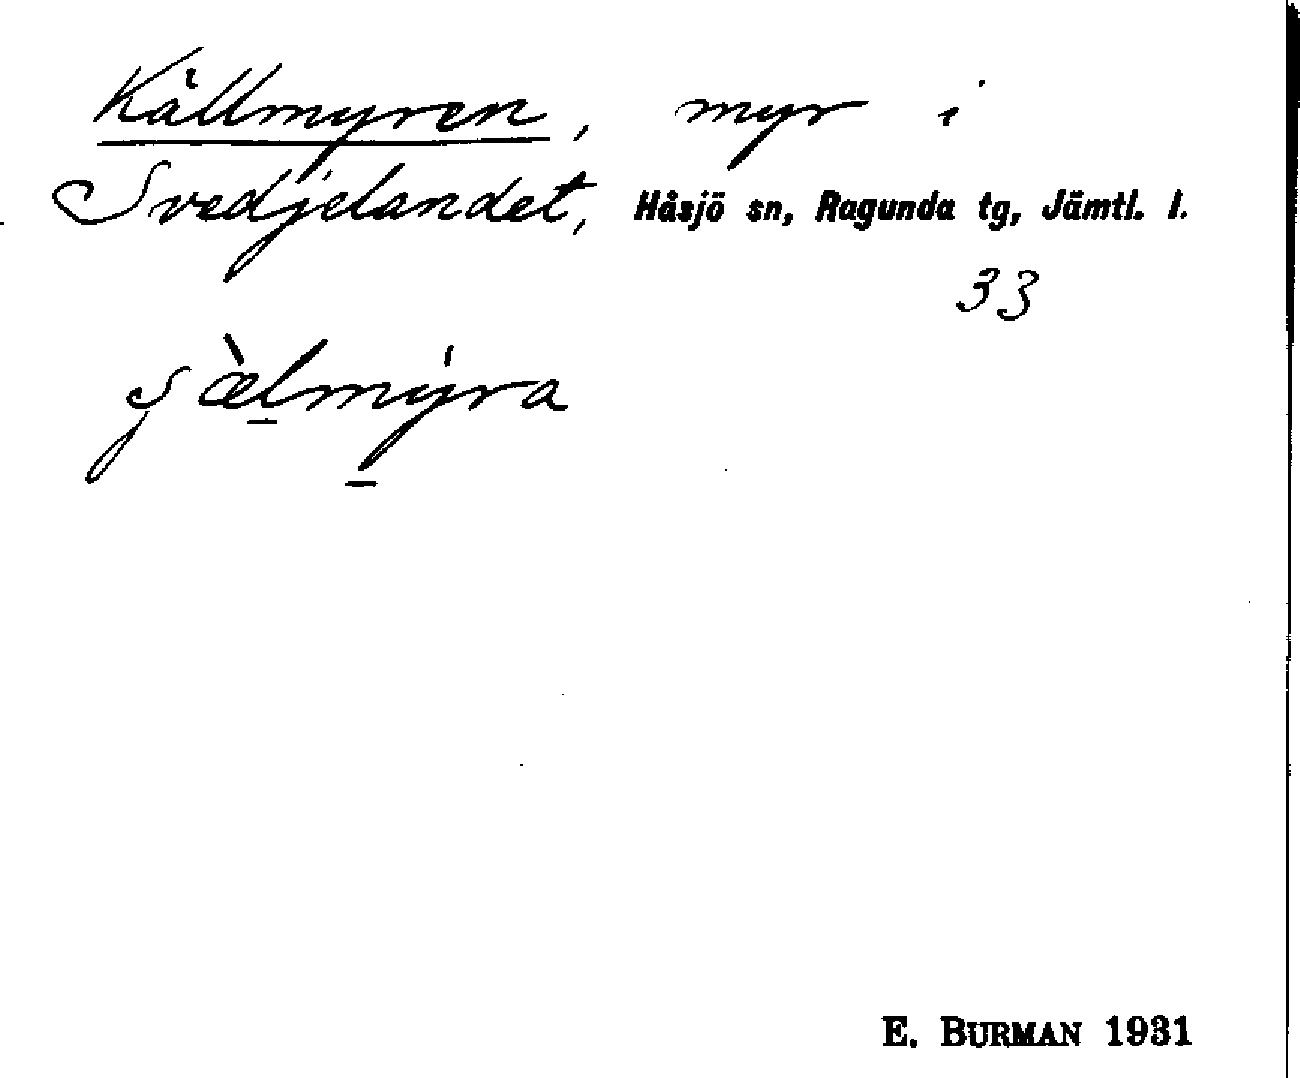 Källmyren, myr i
Svedjelandet, Håsjö sn, Ragunda tg, Jämtl. l.
33
ʃæ̀l̠mý̠ra
E. BURMAN 1931